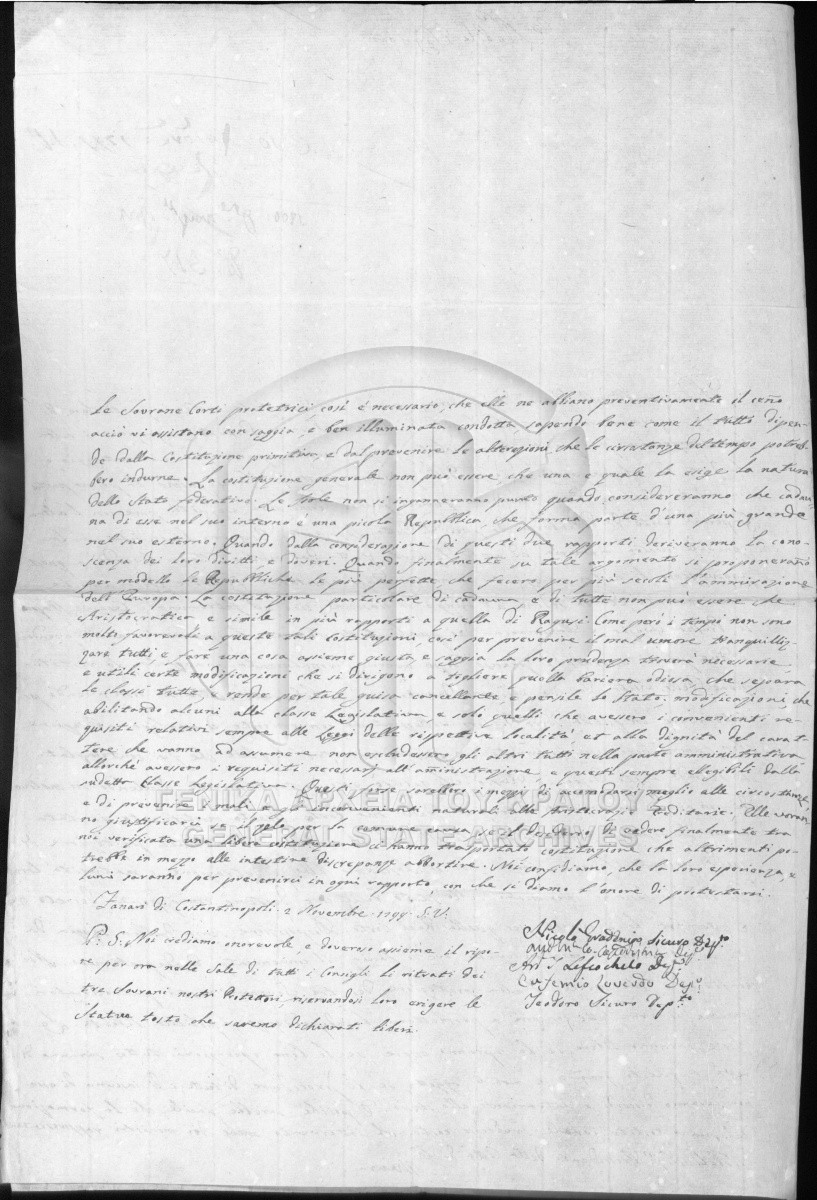 Le Sovrane Corti protetrici così é necessario, che elle ne abbiano preventivamente il ceno
acciò vi assistano con saggia, e ben illuminata condotta sapendo bene come il tutto dipen-
de dalla Costituzione primitiva, e dal prevenire le alterazioni, che le circostanze del tempo potreb-
bero indurne. La costituzione generale non può essere che una e quale la esige la natura
dello Stato federativo. Le Isole non si inganneranno punto quando considereranno che cadau-
na di esse nel suo interno é una picola Repubblica, che forma parte d'una più grande
nel suo esterno. Quando dalla considerazione di questi due rapporti deriveranno la cono-
scenza dei loro diritti, e doveri. Quando finalmente su tale argomento si proponeranno
per modello le Repubbliche le più perfette, che fecero per più secoli l'ammirazione
dell'Europa. La costituzione particolare di cadauna, e di tutte non può essere che
Aristocratica e simile in più rapporti a quella di Ragusi. Come però i tempi non sono
molto favorevoli a queste tali costituzioni così per prevenire il mal umore, tranquilliz-
zare tutti, e fare una cosa assieme giusta, e saggia la loro prudenza troverà necessarie,
e utili certe modificazioni che si dirigono a togliere quella bariera odiosa, che separa
le classi tutte, e rende per tale guisa cancellante, e pensile lo Stato. modificazioni, che
abilitando alcuni alla classe Legislativa, e solo quelli che avessero i convenienti re-
quisiti relativi sempre alle Leggi delle rispettive località et alla dignità del carat-
tere che vanno ad assumere non escludessero gli altri tutti nella parte amministrativa
allorché avessero i requisiti necessarj all'aministrazione, e questi sempre elegibili dalla
sudetta Classe Legislativa. Questi forse sarebbero i mezzi di acomodarsi meglio alle circostanze,
e di prevenire i mali, e gli inconvenienti naturali alle Aristocrazie Ereditarie. Elle voran-
no giustificarci se il zelo per la comune causa, se il desiderio di vedere finalmente tra
noi verificata una libera costituzione ci hanno trasportato costituzione che altrimenti po-
trebbe in mezzo alle intestine discrepanze abbortire. Noi confidiamo, che la loro esperienza, e
lumi saranno per prevenirci in ogni rapporto con che si diamo l'onore di protestarsi.
Fanari di Costantinopoli 2 Novembre 1799. S.V.
P.S. Noi crediamo onorevole e doveroso assieme il ripo-
re per ora nelle Sale di tutti i Consigli li ritrati dei
tre Sovrani nostri Protettori, riservandosi loro erigere le
Statue tosto che saremo dichiarati liberi.
Nicolò Gradenigo Sicuro Dep.to
Dep.to
Ant. Dep.to
Eufemio Loverdo Dep.to
Teodoro Sicuro Dep.to
ΓΕΝΙΚΑ ΑΡΧΕΙΑ ΤΟΥ ΚΡΑΤΟΥΣ
GENERAL STATE ARCHIVES